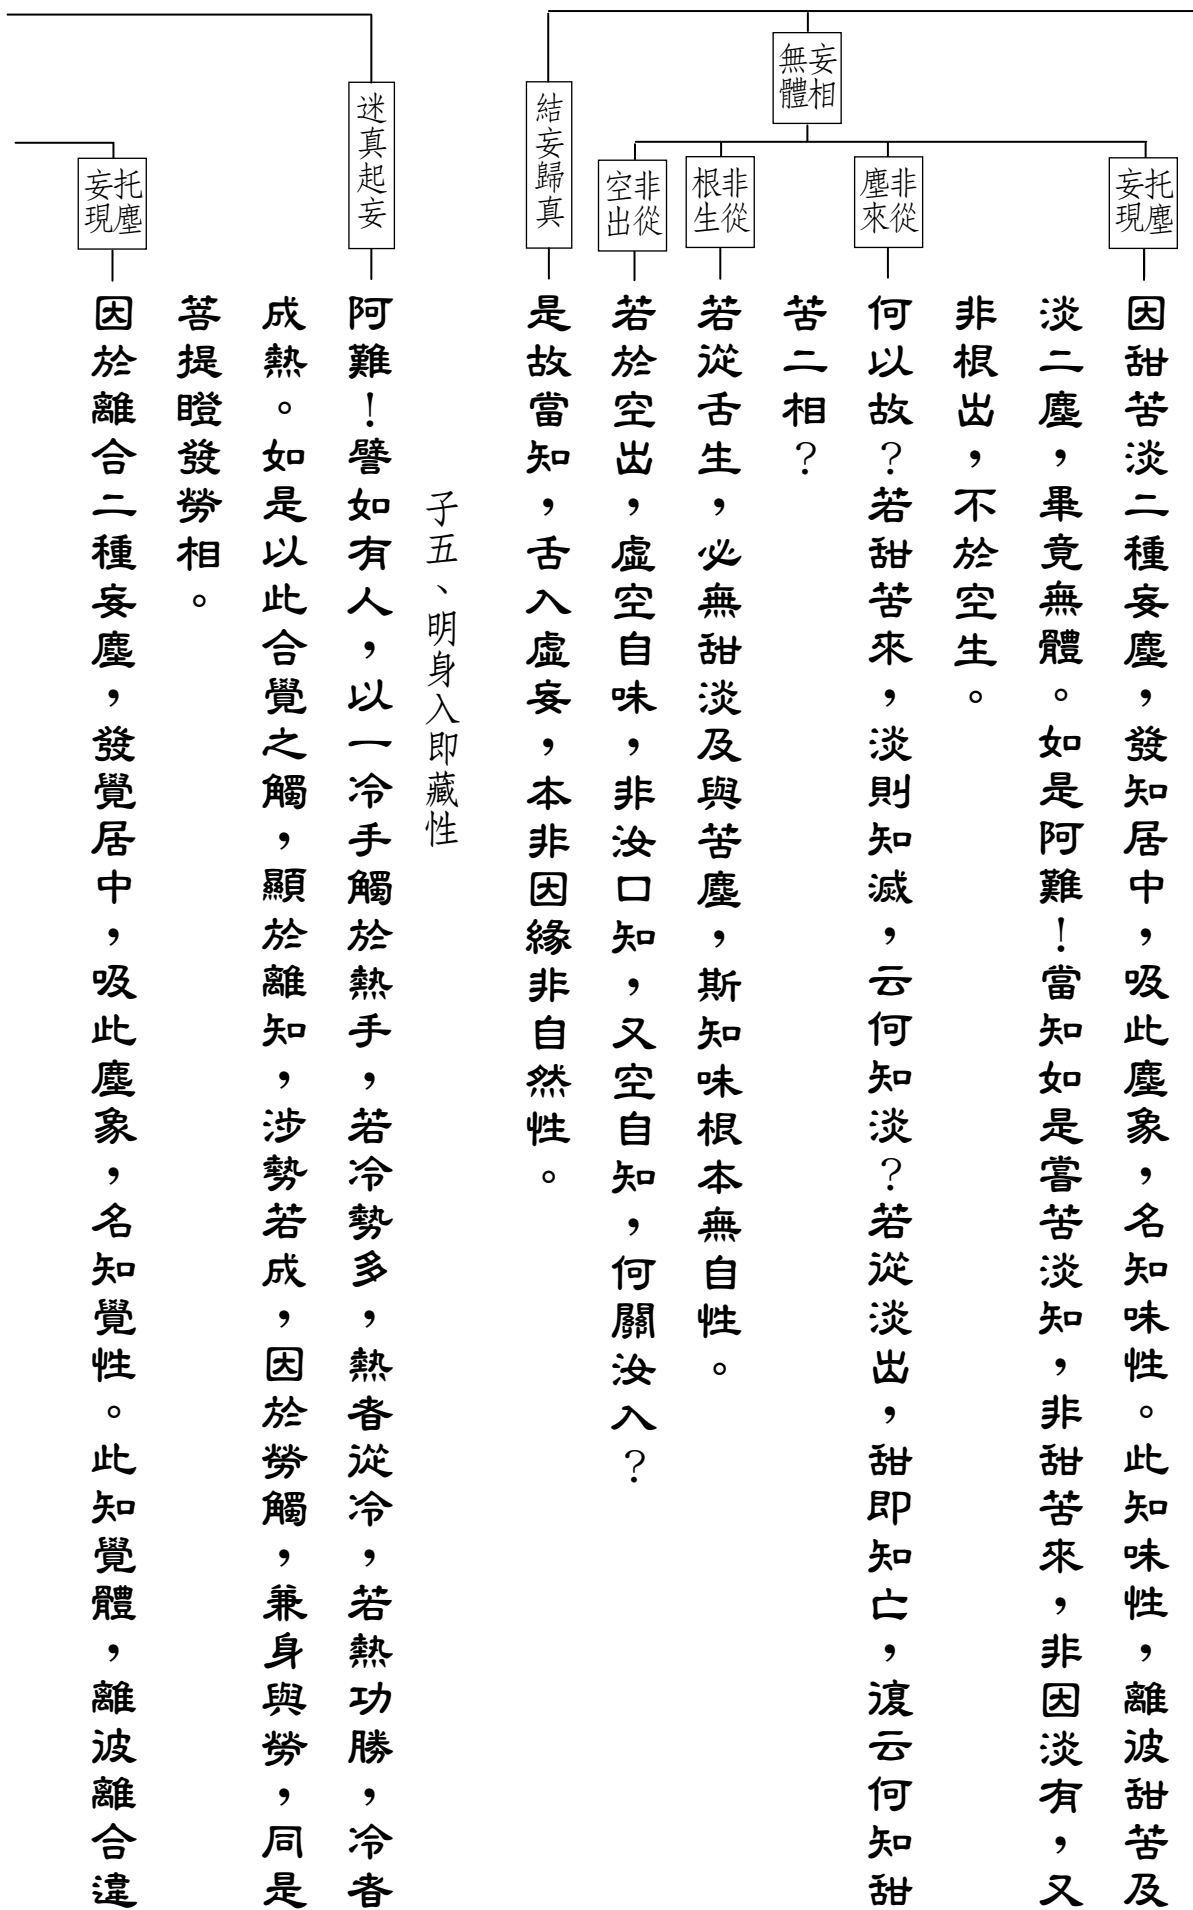 托塵
妄現
因甜苦淡二種妄塵，發知居中，吸此塵象，名知味性。此知味性，離彼甜苦及
淡二塵，畢竟無體。如是阿難！當知如是嘗苦淡知，非甜苦來，非因淡有，又
非根出，不於空生。
妄相
無體
非從
塵來
何以故？若甜苦來，淡則知滅，云何知淡？若從淡出，甜即知亡，復云何知甜
苦二相？
非從
根生
若從舌生，必無甜淡及與苦塵，斯知味根本無自性。
非從
空出
若於空出，虛空自味，非汝口知，又空自知，何關汝入？
結妄歸真
是故當知，舌入虛妄，本非因緣非自然性。
子五、明身入即藏性
迷真起妄
阿難！譬如有人，以一冷手觸於熱手，若冷勢多，熱者從冷，若熱功勝，冷者
成熱。如是以此合覺之觸，顯於離知，涉勢若成，因於勞觸，兼身與勞，同是
菩提瞪發勞相。
托塵
妄現
因於離合二種妄塵，發覺居中，吸此塵象，名知覺性。此知覺體，離彼離合違